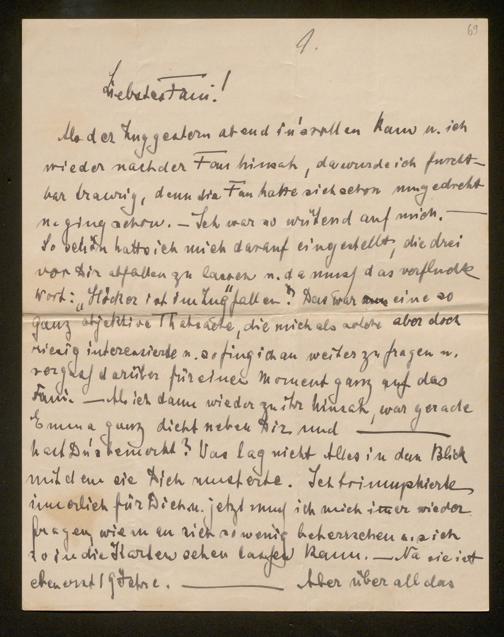 69
1.
Liebstes Fani!
Als der Zug gestern abend in's rollen kam u. ich
wieder nach der Fani hinsah, da wurde ich furcht-
bar traurig, denn die Fani hatte sich schon umgedreht
u. ging schon. — Ich war so wütend auf mich. —
So schön hatte ich mich darauf eingestellt, die drei
vor Dir abfallen zu lassen u. da muß das verfluchte
Wort: „Stöcker ist im Zug" fallen? Das war eine so
ganz objektive Thatsache, die mich als solche aber doch
riesig interessierte u. so fing ich an weiter zu fragen u.
vergaß darüber für einen Moment ganz auf das
Fani. — Als ich dann wieder zu ihr hinsah, war gerade
Emma ganz dicht neben Dir und ———
hast Du's bemerkt? Was lag nicht Alles in dem Blick
mit dem sie Dich musterte. Ich triumphierte
innerlich für Dich u. jetzt muß ich mich immer wieder
fragen wie man sich so wenig beherrschen u. sich
so in die Karten sehen lassen kann. — Na sie ist
eben erst 19 Jahre. ——— Aber über all das